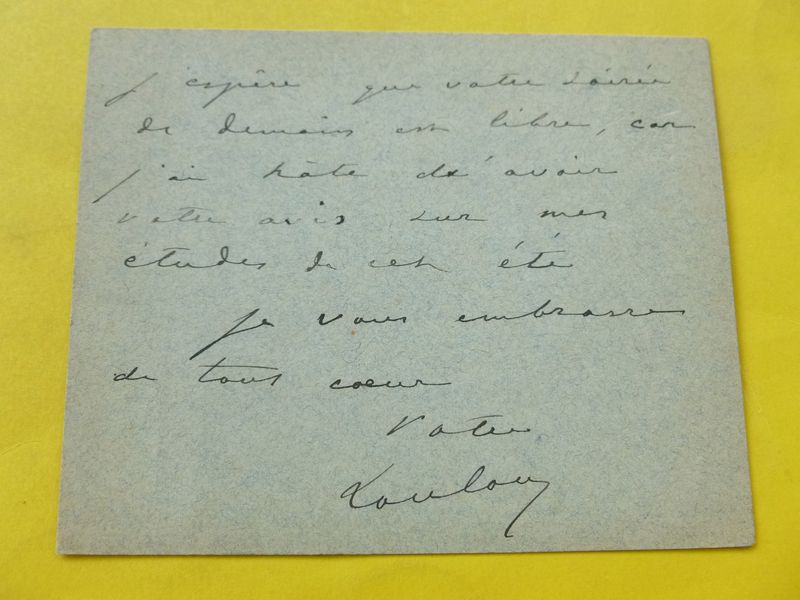 j'espère que votre soirée
de demain est libre, car
j'ai hâte d'avoir
votre avis sur mes
études de cet été
je vous embrasse
de tout cœur
Votre
Loulou